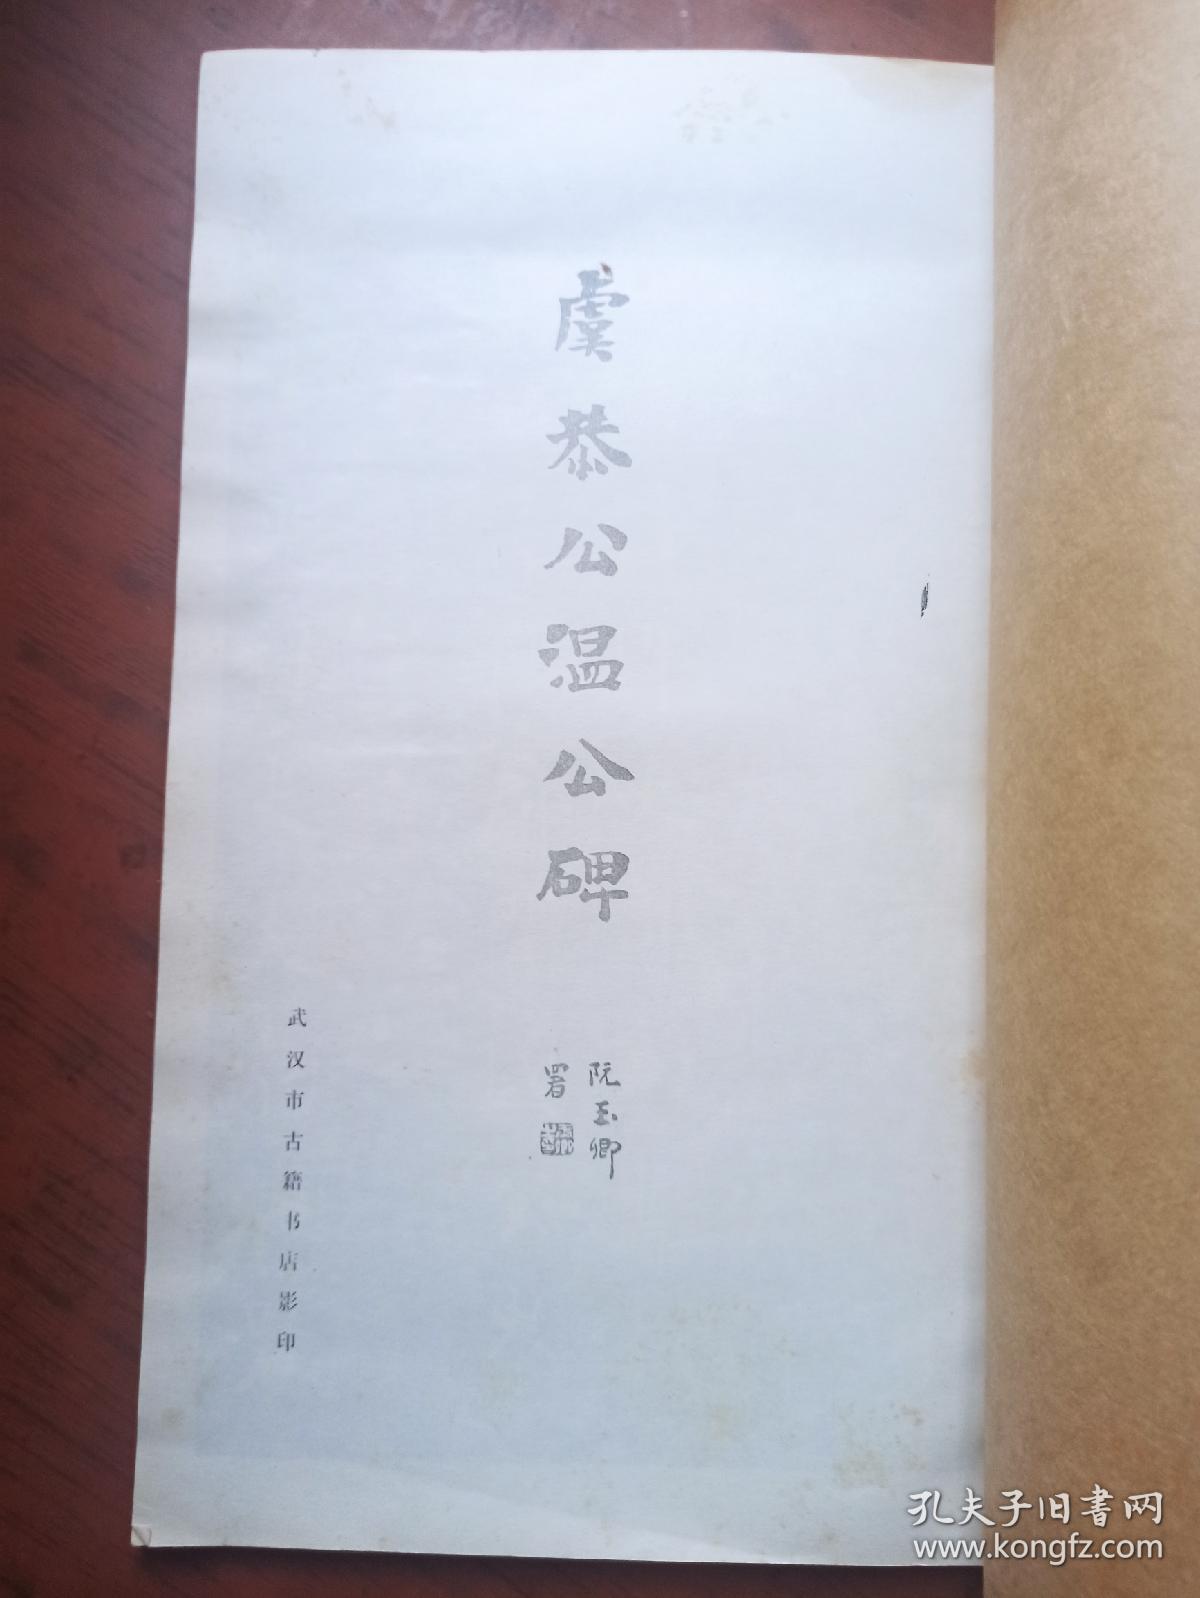 虞恭公温公碑
阮玉卿
署
武汉市古籍书店影印
孔夫子旧書网
www.kongfz.com